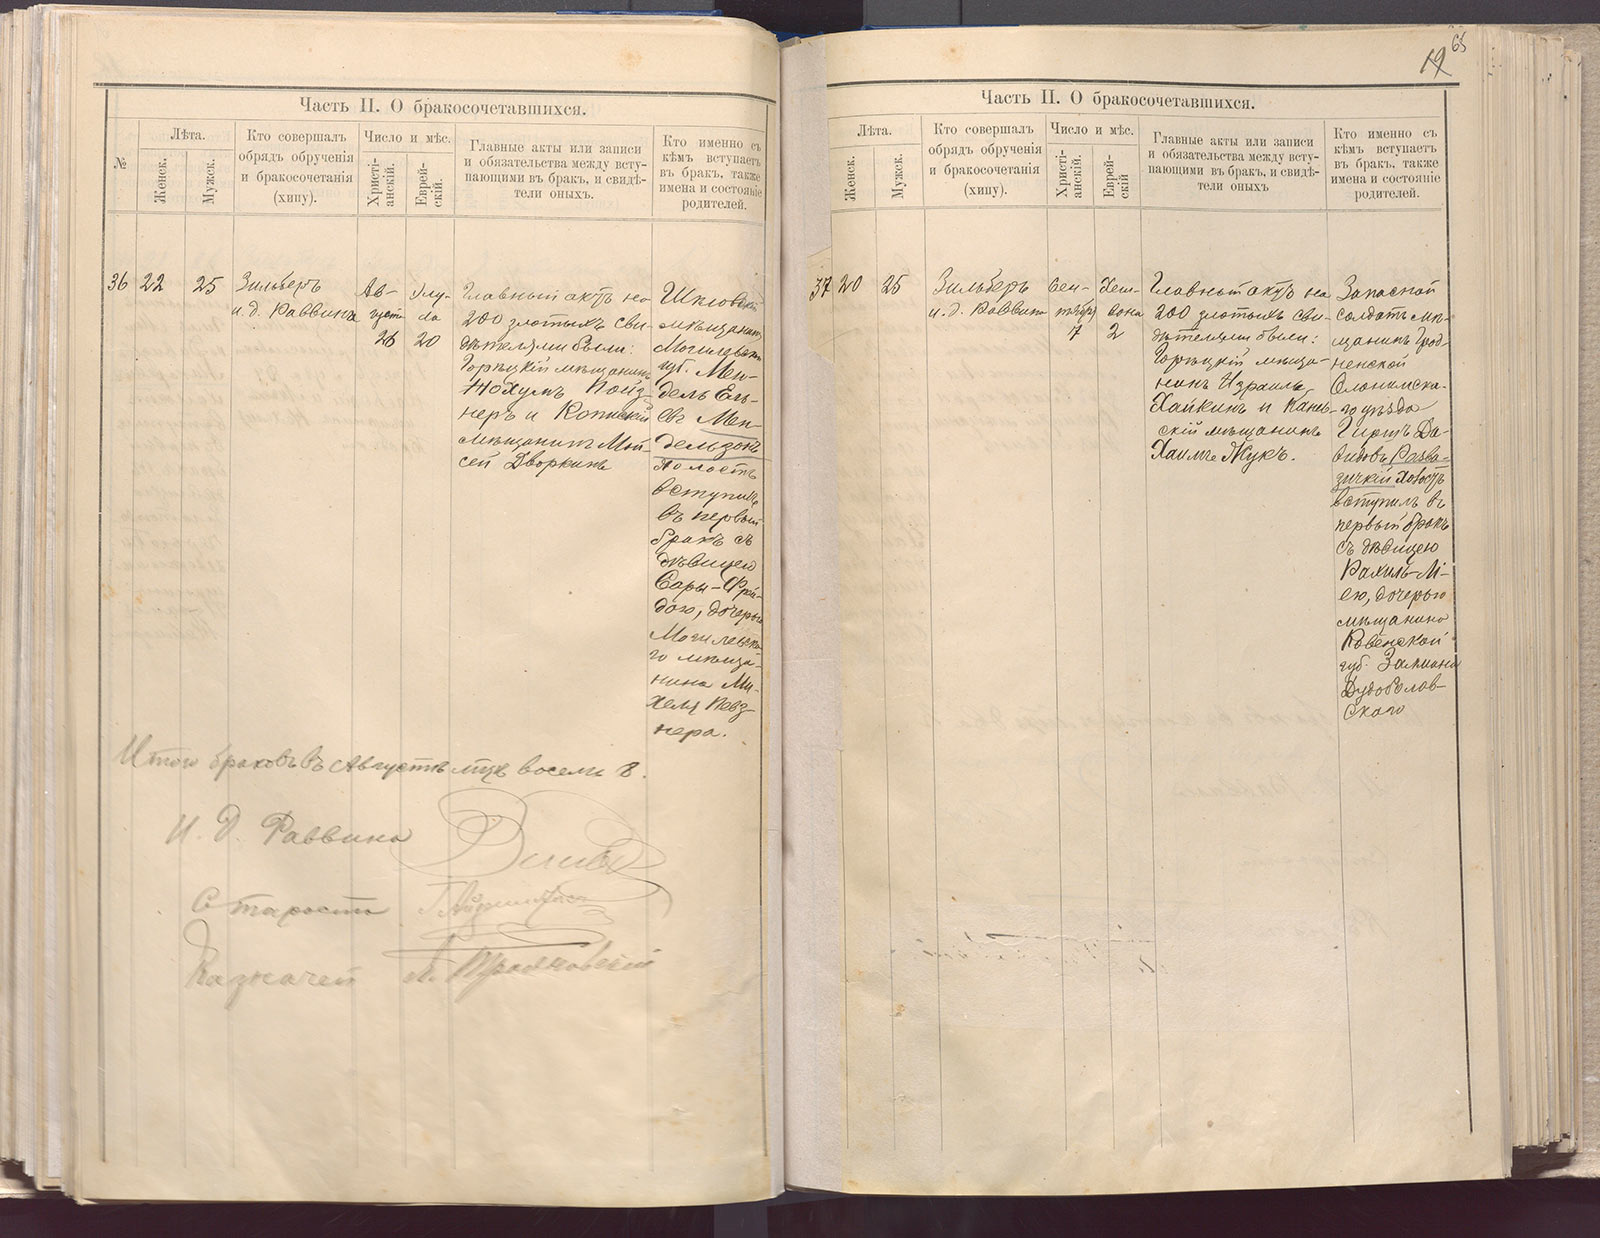 Часть II. О бракосочетавшихся.
№
Лѣта.
Женск.
Мужск.
Кто совершалъ
обрядъ обрученія
и бракосочетанія
(хипу).
Число и мѣс.
Христі-
анскій.
Еврей-
скій.
Главные акты или записи
и обязательства между всту-
пающими въ бракъ, и свидѣ-
тели оныхъ.
Кто именно съ
кѣмъ вступаетъ
въ бракъ, также
имена и состояніе
родителей.
36
22
25
Зильберъ
и. д. Раввина
Ав-
густа
28
Элу-
ла
20
Главный актъ на
200 злотыхъ сви-
дѣтелями были:
Горецкій мѣщанинъ
Нохумъ Пойз-
неръ и Копысскій
мѣщанинъ Мой-
сей Дворкинъ
Шкловскій
мѣщанинъ
Могилевской
губ. Мен-
дель Ель-
евъ Мен-
дельзонъ
холостъ
вступилъ
въ первый
бракъ съ
дѣвицею
Сары-Фрей-
дою, дочерью
Могилевска-
го мѣща-
нина Ми-
хеля Певз-
нера.
Итого браковъ въ Августѣ мцѣ восемь 8.
И. д. Раввина
Староста
Казначей
19
65
Часть II. О бракосочетавшихся.
Лѣта.
Женск.
Мужск.
Кто совершалъ
обрядъ обрученія
и бракосочетанія
(хипу).
Число и мѣс.
Христі-
анскій.
Еврей-
скій
Главные акты или записи
и обязательства между всту-
пающими въ бракъ, и свидѣ-
тели оныхъ
Кто именно съ
кѣмъ вступаетъ
въ бракъ, также
имена и состояніе
родителей.
37
20
25
Зильберъ
и. д. Раввина
Сен-
тября
7
Хеш-
вона
2
Главный актъ на
200 злотыхъ сви-
дѣтелями были:
Горецкій мѣща-
нинъ Израиль
Хайкинъ и
скій мѣщанинъ
Хаимъ Жукъ.
Запасной
солдатъ мѣ-
щанинъ Грод-
ненской
Слонимска-
го уѣзда
Гиршъ Да-
видовъ Разва-
зичкій холостъ
вступилъ въ
первый бракъ
съ дѣвицею
Рахиль-М-
ею, дочерью
мѣщанина
Ковенской
губ. Залмана
ского